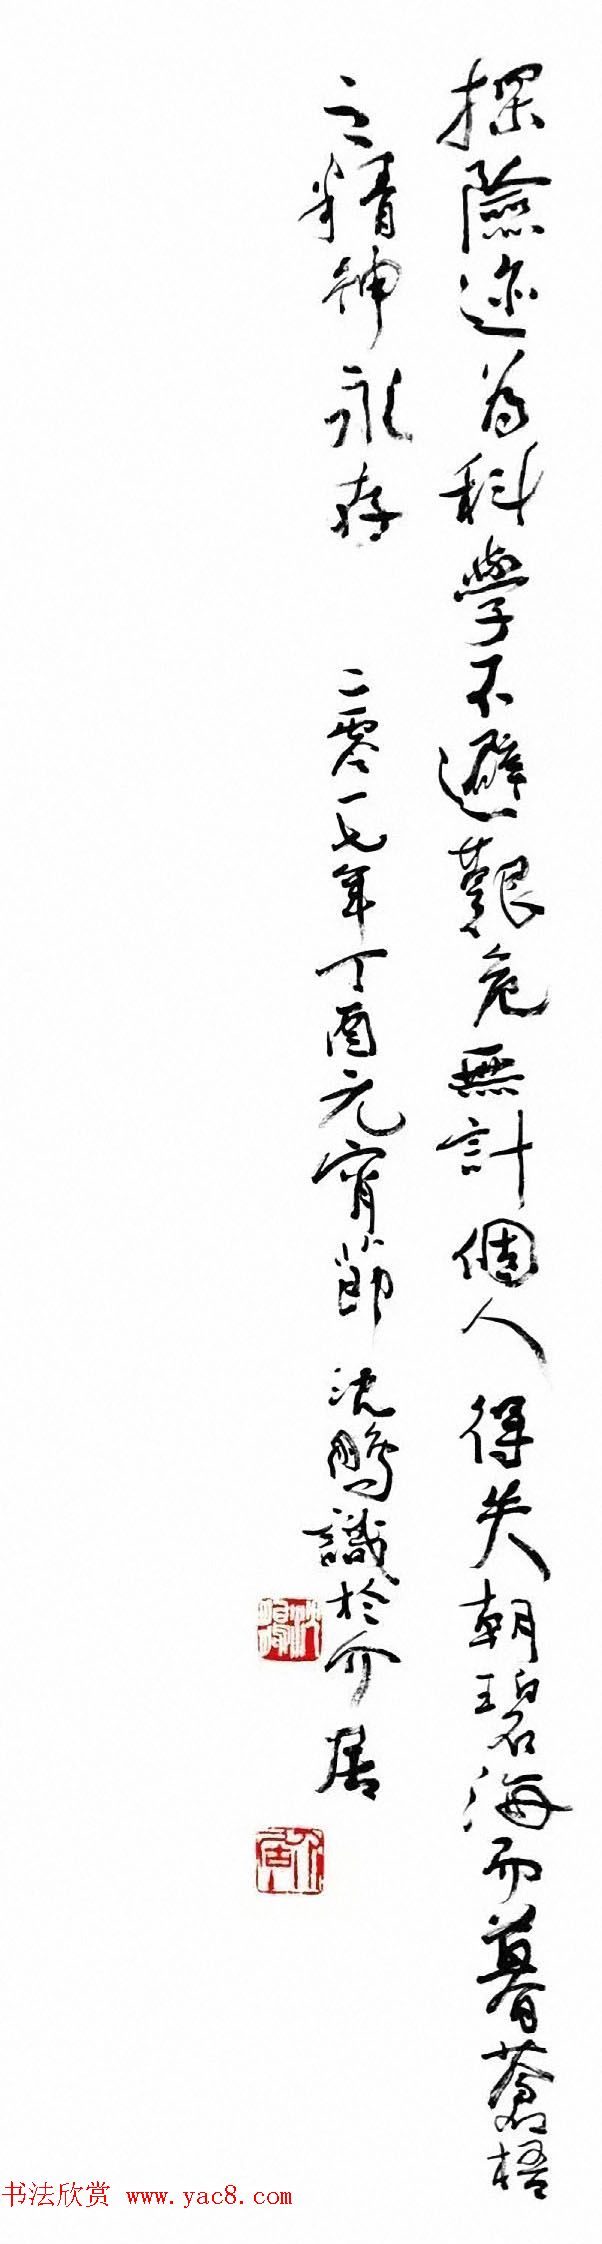 探險迹為科學不避艱危無計個人得失朝碧海而暮蒼梧
之精神永存
二零一七年丁酉元宵節沈鵬識於介居
沈鵬
介居
书法欣赏 www.yac8.com